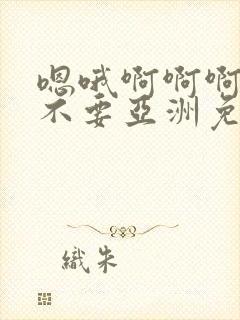 嗯哦啊啊啊
不要亞洲免
織朱